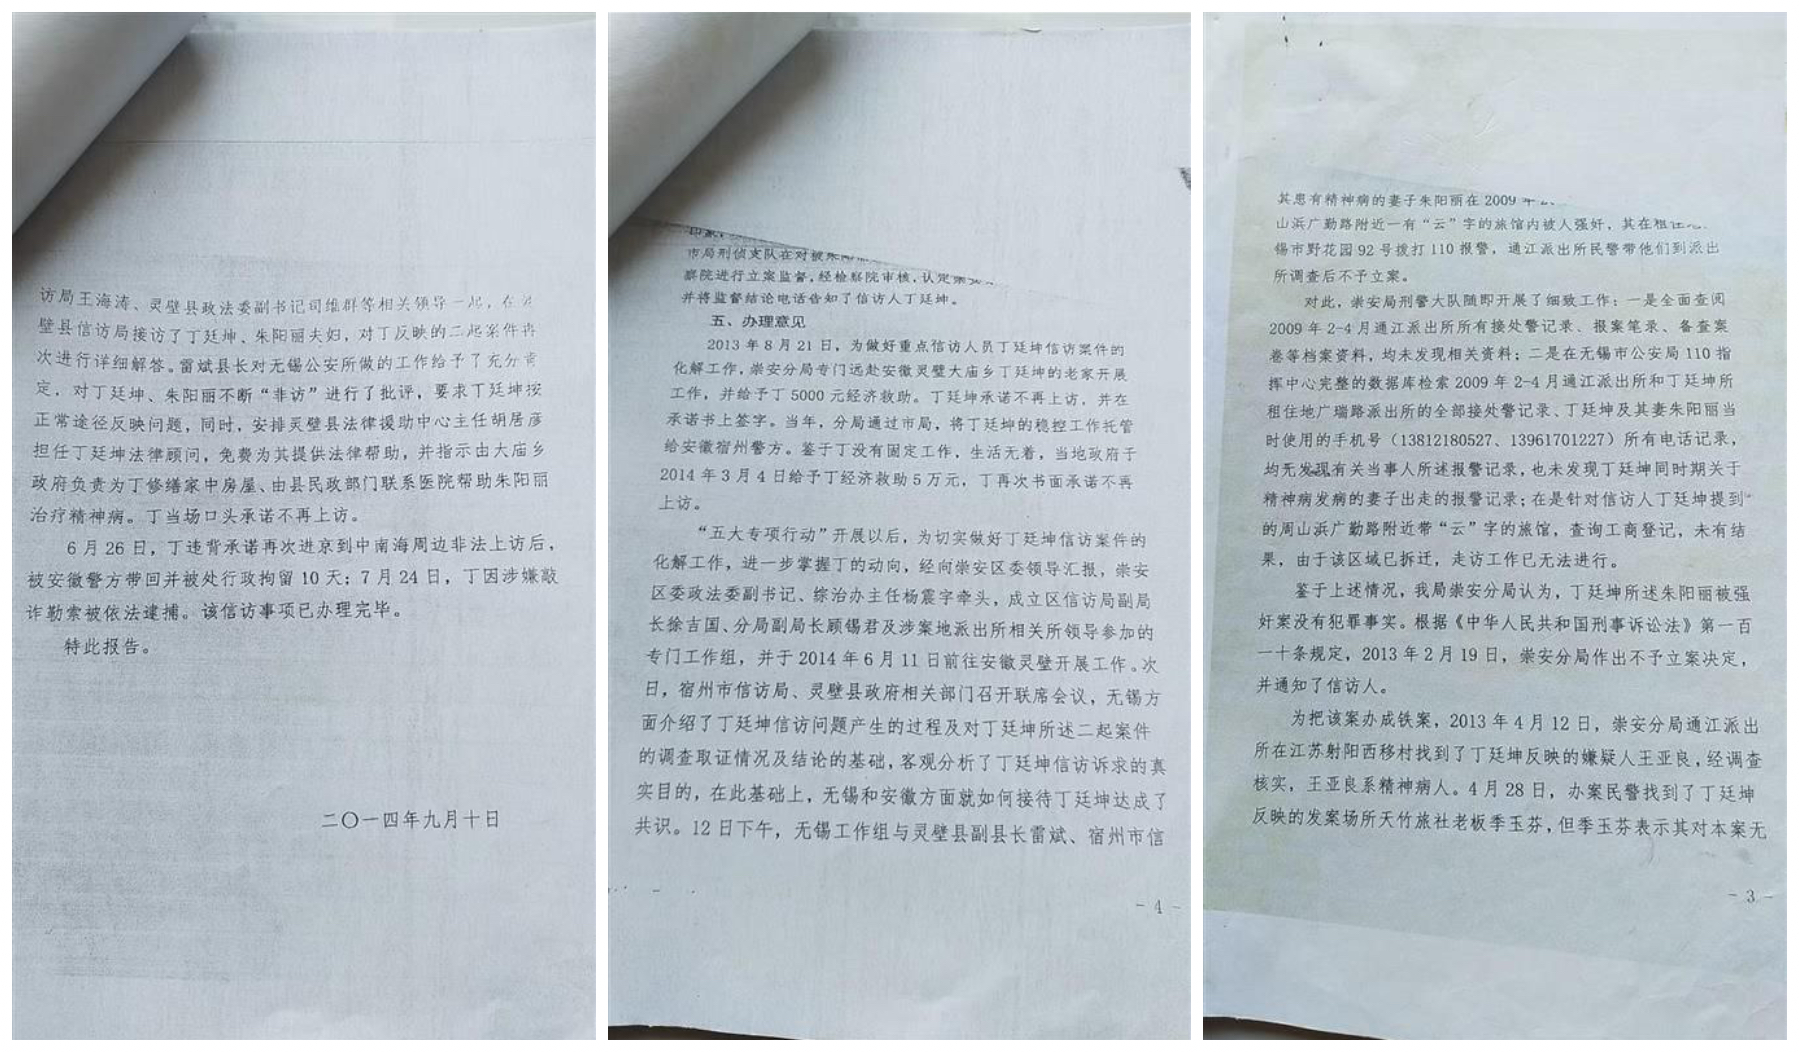 访局王海涛、灵璧县政法委副书记司维群等相关领导一起，在灵
璧县信访局接访了丁廷坤、朱阳丽夫妇，对丁反映的二起案件再
次进行详细解答。雷斌县长对无锡公安所做的工作给予了充分肯
定，对丁廷坤、朱阳丽不断“非访”进行了批评，要求丁廷坤按
正常途径反映问题，同时，安排灵璧县法律援助中心主任胡居彦
担任丁廷坤法律顾问，免费为其提供法律帮助，并指示由大庙乡
政府负责为丁修缮家中房屋、由县民政部门联系医院帮助朱阳丽
治疗精神病。丁当场口头承诺不再上访。
6月26日，丁违背承诺再次进京到中南海周边非法上访后，
被安徽警方带回并被处行政拘留10天；7月24日，丁因涉嫌敲
诈勒索被依法逮捕。该信访事项已办理完毕。
特此报告。
二〇一四年九月十日
市局刑侦支队在对被朱阳
察院进行立案监督，经检察院审核，认定崇安
并将监督结论电话告知了信访人丁廷坤。
五、办理意见
2013年8月21日，为做好重点信访人员丁廷坤信访案件的
化解工作，崇安分局专门远赴安徽灵璧大庙乡丁廷坤的老家开展
工作，并给予丁5000元经济救助。丁廷坤承诺不再上访，并在
承诺书上签字。当年，分局通过市局，将丁廷坤的稳控工作托管
给安徽宿州警方。鉴于丁没有固定工作，生活无着，当地政府于
2014年3月4日给予丁经济救助5万元，丁再次书面承诺不再
上访。
“五大专项行动”开展以后，为切实做好丁廷坤信访案件的
化解工作，进一步掌握丁的动向，经向崇安区委领导汇报，崇安
区委政法委副书记、综治办主任杨震宇牵头，成立区信访局副局
长徐吉国、分局副局长顾锡君及涉案地派出所相关所领导参加的
专门工作组，并于2014年6月11日前往安徽灵璧开展工作。次
日，宿州市信访局、灵璧县政府相关部门召开联席会议，无锡方
面介绍了丁廷坤信访问题产生的过程及对丁廷坤所述二起案件
的调查取证情况及结论的基础，客观分析了丁廷坤信访诉求的真
实目的，在此基础上，无锡和安徽方面就如何接待丁廷坤达成了
共识。12日下午，无锡工作组与灵璧县副县长雷斌、宿州市信
- 4 -
其患有精神病的妻子朱阳丽在2009年
山浜广勤路附近一有“云”字的旅馆内被人强奸，其在租住
锡市野花园92号拨打110报警，通江派出所民警带他们到派出
所调查后不予立案。
对此，崇安局刑警大队随即开展了细致工作：一是全面查阅
2009年2-4月通江派出所所有接处警记录、报案笔录、备查案
卷等档案资料，均未发现相关资料；二是在无锡市公安局110指
挥中心完整的数据库检索2009年2-4月通江派出所和丁廷坤所
租住地广瑞路派出所的全部接处警记录、丁廷坤及其妻朱阳丽当
时使用的手机号（13812180527、13961701227）所有电话记录，
均无发现有关当事人所述报警记录，也未发现丁廷坤同时期关于
精神病发病的妻子出走的报警记录；在是针对信访人丁廷坤提到
的周山浜广勤路附近带“云”字的旅馆，查询工商登记，未有结
果，由于该区域已拆迁，走访工作已无法进行。
鉴于上述情况，我局崇安分局认为，丁廷坤所述朱阳丽被强
奸案没有犯罪事实。根据《中华人民共和国刑事诉讼法》第一百
一十条规定，2013年2月19日，崇安分局作出不予立案决定，
并通知了信访人。
为把该案办成铁案，2013年4月12日，崇安分局通江派出
所在江苏射阳西移村找到了丁廷坤反映的嫌疑人王亚良，经调查
核实，王亚良系精神病人。4月28日，办案民警找到了丁廷坤
反映的发案场所天竹旅社老板季玉芬，但季玉芬表示其对本案无
- 3 -